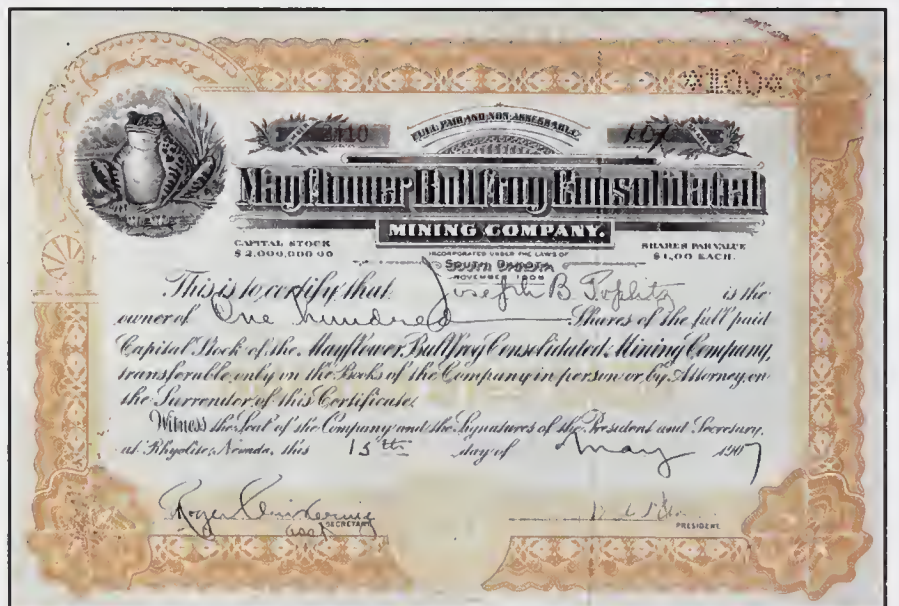 *100*
NUMBER 2410
FULL PAID AND NON-ASSESSABLE
SHARES
Mayflower Bullfrog Consolidated
MINING COMPANY.
CAPITAL STOCK
$2,000,000.00
INCORPORATED UNDER THE LAWS OF
SOUTH DAKOTA
NOVEMBER
SHARES PAR VALUE
$1.00 EACH.
This is to certify that Joseph B. Toplitz is the
owner of One hundred Shares of the full paid
Capital Stock of the Mayflower Bullfrog Consolidated Mining Company,
transferable only on the Books of the Company in person or by Attorney, on
the Surrender of this Certificate.
Witness the Seal of the Company and the Signatures of the President and Secretary,
at Rhyolite, Nevada, this 15th day of May 1907
SECRETARY
PRESIDENT